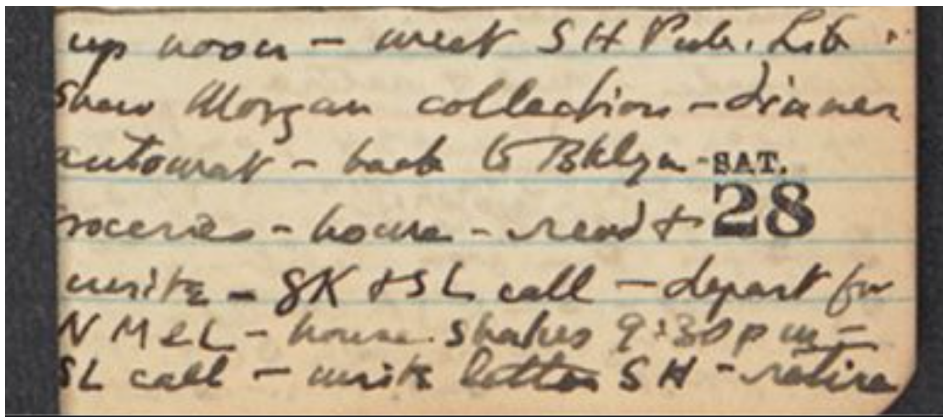 up noon – meet SH Pub. Lib.
show Morgan collection – dinner
automat – back to Bklyn – SAT.
groceries – home – read & 28
write – GK & SL call – depart for
N M & L – house shakes 9:30 pm –
SL call – write letter SH – retire